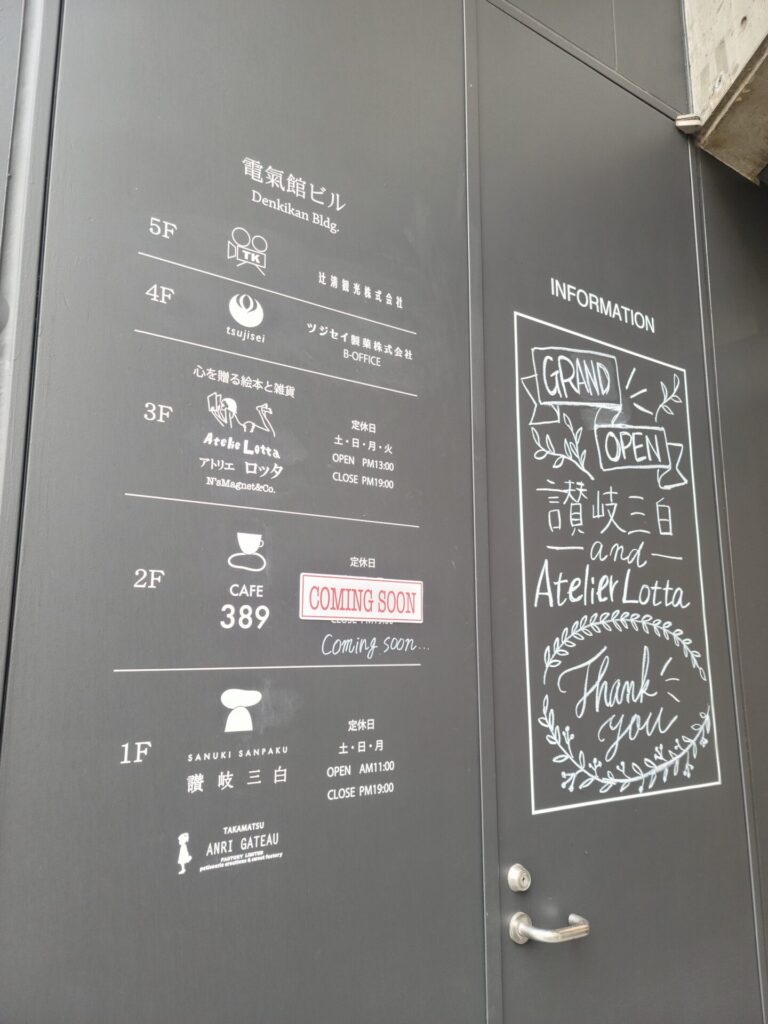 電氣館ビル
Denkikan Bldg.
5F
TK
辻清観光株式会社
4F
tsujisei
ツジセイ製菓株式会社
B-OFFICE
心を贈る絵本と雑貨
3F
Atelie Lotta
アトリエ ロッタ
N'sMagnet&Co.
定休日
土・日・月・火
OPEN PM13:00
CLOSE PM19:00
2F
CAFE
389
定休日
COMING SOON
CLOSE PM19:00
Coming soon...
1F
SANUKI SANPAKU
讃岐三白
定休日
土・日・月
OPEN AM11:00
CLOSE PM19:00
TAKAMATSU
ANRI GATEAU
FACTORY LIMITED
patisserie creations & sweet factory
INFORMATION
GRAND
OPEN
讃岐三白
and
Atelier Lotta
Thank
you